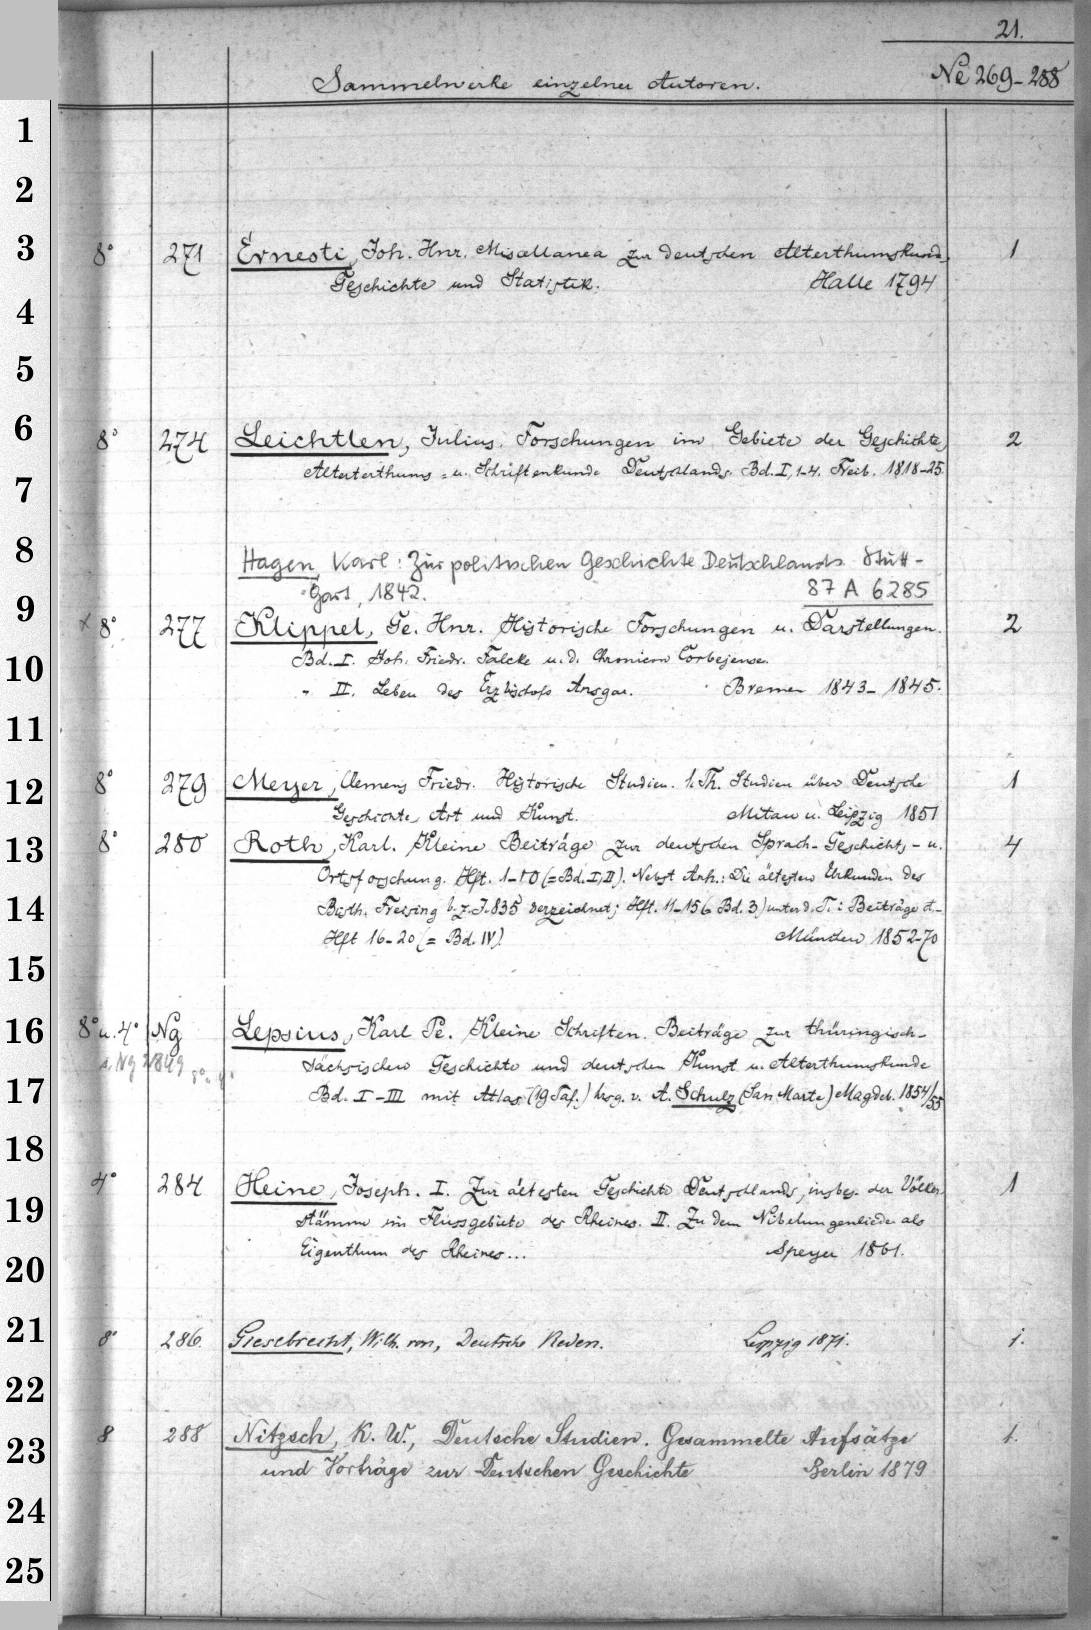 21.
Sammelwerke einzelner Autoren. Ne 269-288
1
2
3 8° 271 Ernesti, Joh. Hnr. Miscellanea zur deutschen Alterthumskunde, 1
Geschichte und Statistik. Halle 1794
4
5
6 8° 274 Leichtlen, Julius. Forschungen im Gebiete der Geschichte, 2
Alterterthums = u. Schriftenkunde Deutschlands. Bd. I, 1-4. Freib. 1818-25.
7
8 Hagen, Karl: Zur politischen Geschichte Deutschlands Stutt-
gart, 1842. 87 A 6285
9 x 8° 277 Klippel, Ge. Hnr. Historische Forschungen u. Darstellungen. 2
10 Bd. I. Joh. Friedr. Falcke u. d. Chronicon Corbejense.
" II. Leben des Erzbischofs Ansgar. Bremen 1843-1845.
11
12 8° 279 Meyer, Clemens Friedr. Historische Studien. 1. Th. Studien über Deutsche 1
Geschichte, Art und Kunst. Mitau u. Leipzig 1851
13 8° 280 Roth, Karl. Kleine Beiträge zur deutschen Sprach- Geschichts- u. 4
Ortsforschung. Hft. 1-10 (=Bd. I, II). Nebst Anh.: Die ältesten Urkunden des
14 Bisth. Freising b. z. J. 835 verzeichnet; Hft. 11-15 (= Bd. 3) unter d. T.: Beiträge etc.
Hft 16-20 (= Bd. IV). München 1852-70
15
16 8° u. 4° Ng Lepsius, Karl Pe. Kleine Schriften. Beiträge zur thüringisch-
s. Ng 2849 8° u. 4° sächsischen Geschichte und deutschen Kunst u. Alterthumskunde
17 Bd. I-III mit Atlas (19 Taf.) hrsg. v. A. Schulz (San Marte) Magdeb. 1854/55
18
19 4° 284 Heine, Joseph. I. Zur ältesten Geschichte Deutschlands, insbes. der Völker- 1
stämme im Flussgebiete des Rheines. II. Zu dem Nibelungenliede als
20 Eigenthum des Rheines... Speyer 1861.
21 8° 286. Giesebrecht, Wilh. von, Deutsche Reden. Leipzig 1871. 1.
22
23 8 288 Nitzsch, K. W., Deutsche Studien. Gesammelte Aufsätze 1.
und Vorträge zur Deutschen Geschichte Berlin 1879
24
25